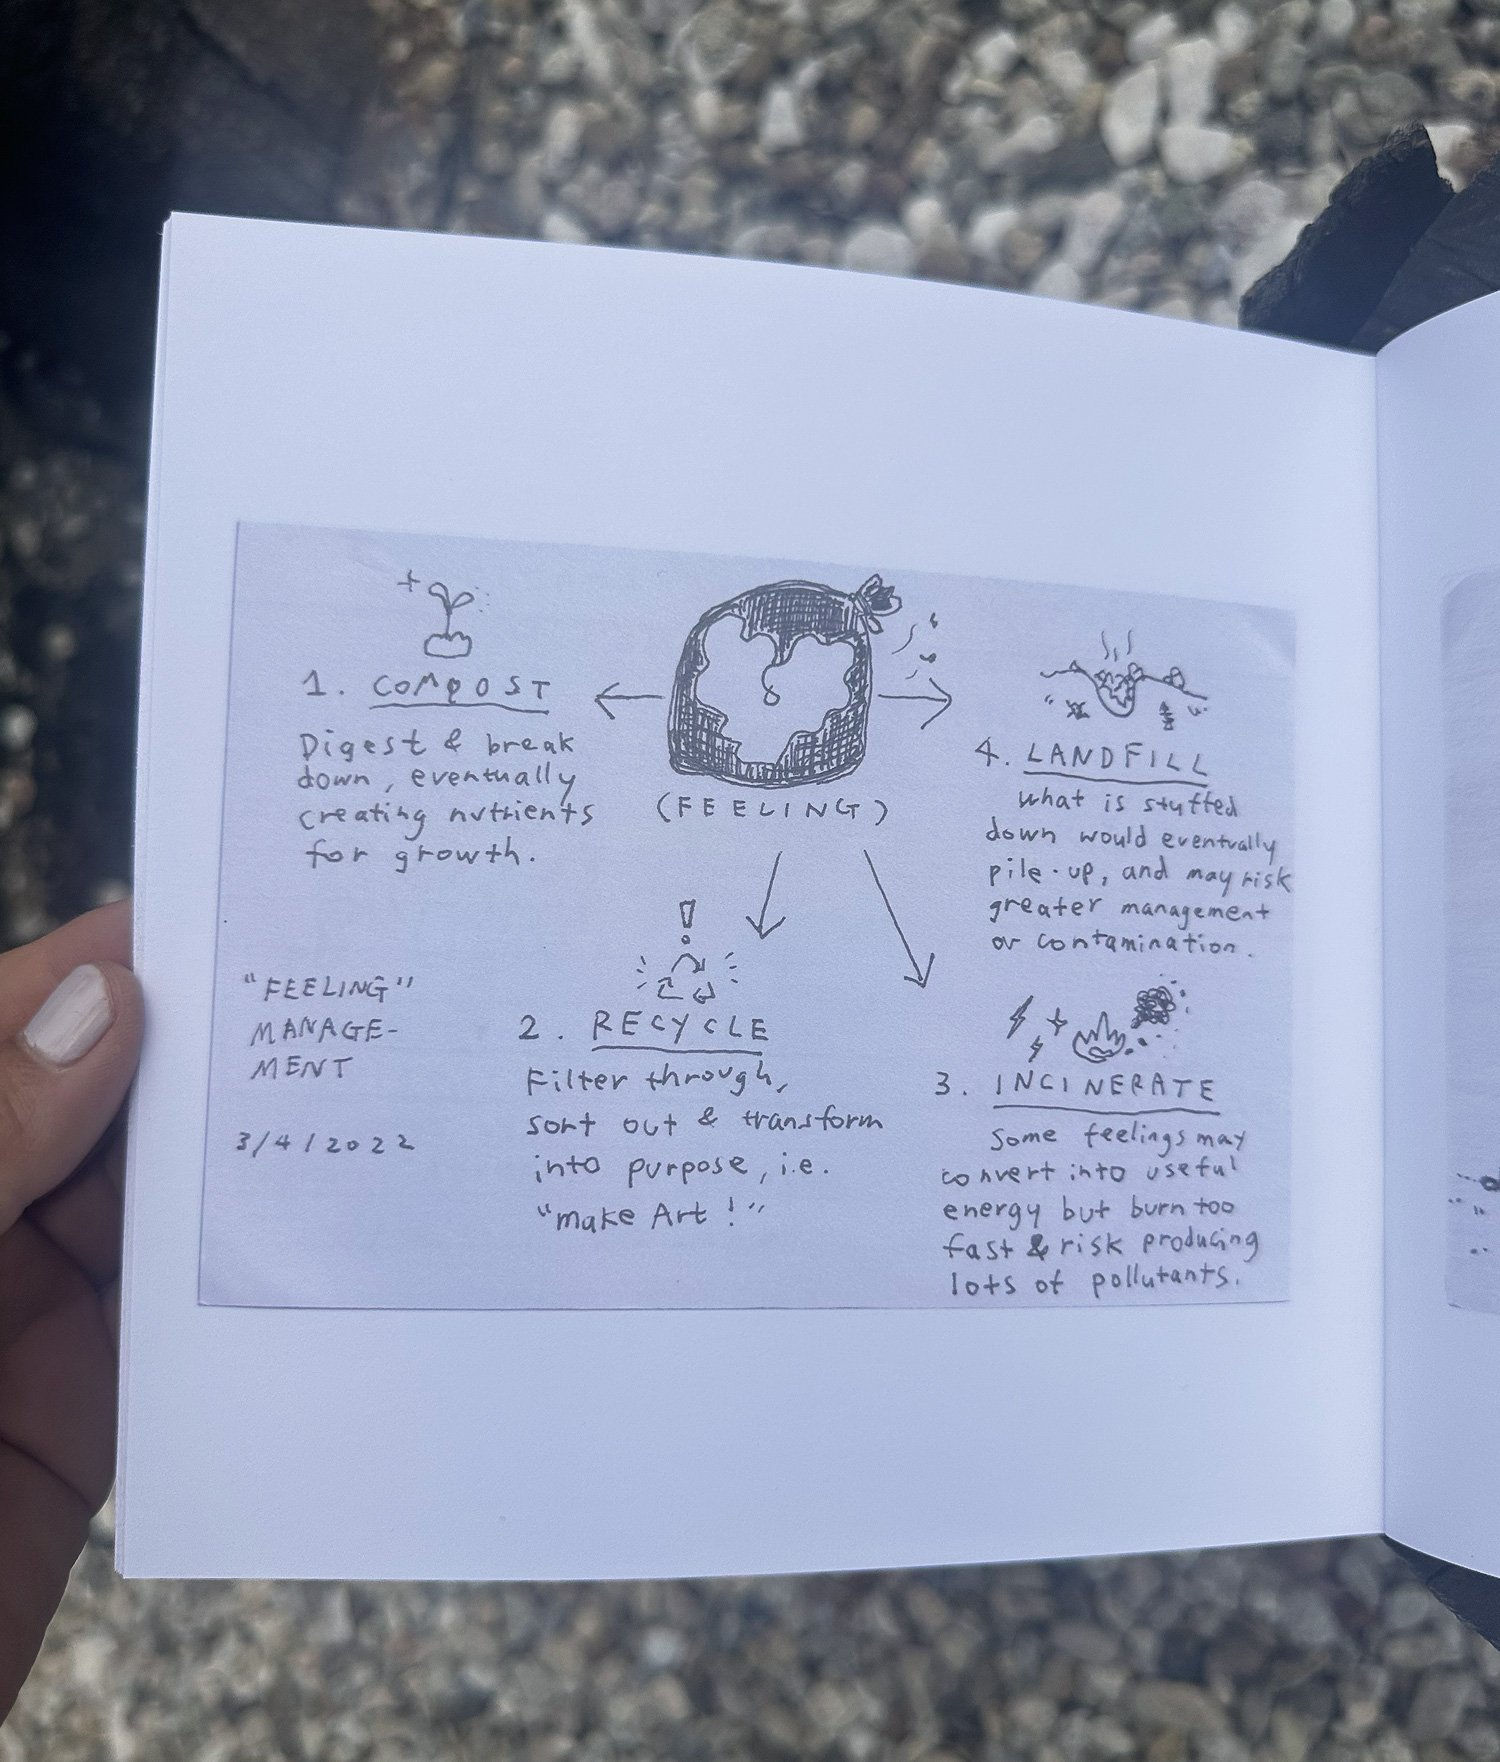 1. COMPOST
Digest & break
down, eventually
creating nutrients
for growth.
(FEELING)
4. LANDFILL
what is stuffed
down would eventually
pile-up, and may risk
greater management
or contamination.
"FEELING"
MANAGE-
MENT
3/4/2022
2. RECYCLE
Filter through,
sort out & transform
into purpose, i.e.
"make Art!"
3. INCINERATE
Some feelings may
convert into useful
energy but burn too
fast & risk producing
lots of pollutants.